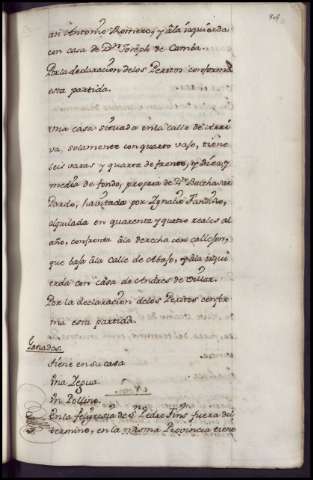 an Antonio Romero, y a la izquierda
con casa de Dn. Joseph de Camba.
Por la declaracion de los Peritos conforma
esta partida.
Una casa situada en la calle de Arri
va, solamente con quarto vajo, tiene
seis varas y quarta de frente, y diez y
media de fondo, propia de Dn. Balthasar
Pardo, havitada por Ignacio Fandiño,
alquilada en quarenta y quatro reales al
año, confronta a la derecha con callejon,
que baja a la calle de Abajo, y a la izqui
erda con casa de Andres de Villar.
Por la declaracion de los Peritos confor
ma esta partida.
Ganados
tiene en su casa
Una Yegua
Un Pollino
En la feligresia de Sn. Pedro fuera del
termino, en la misma Provincia tiene